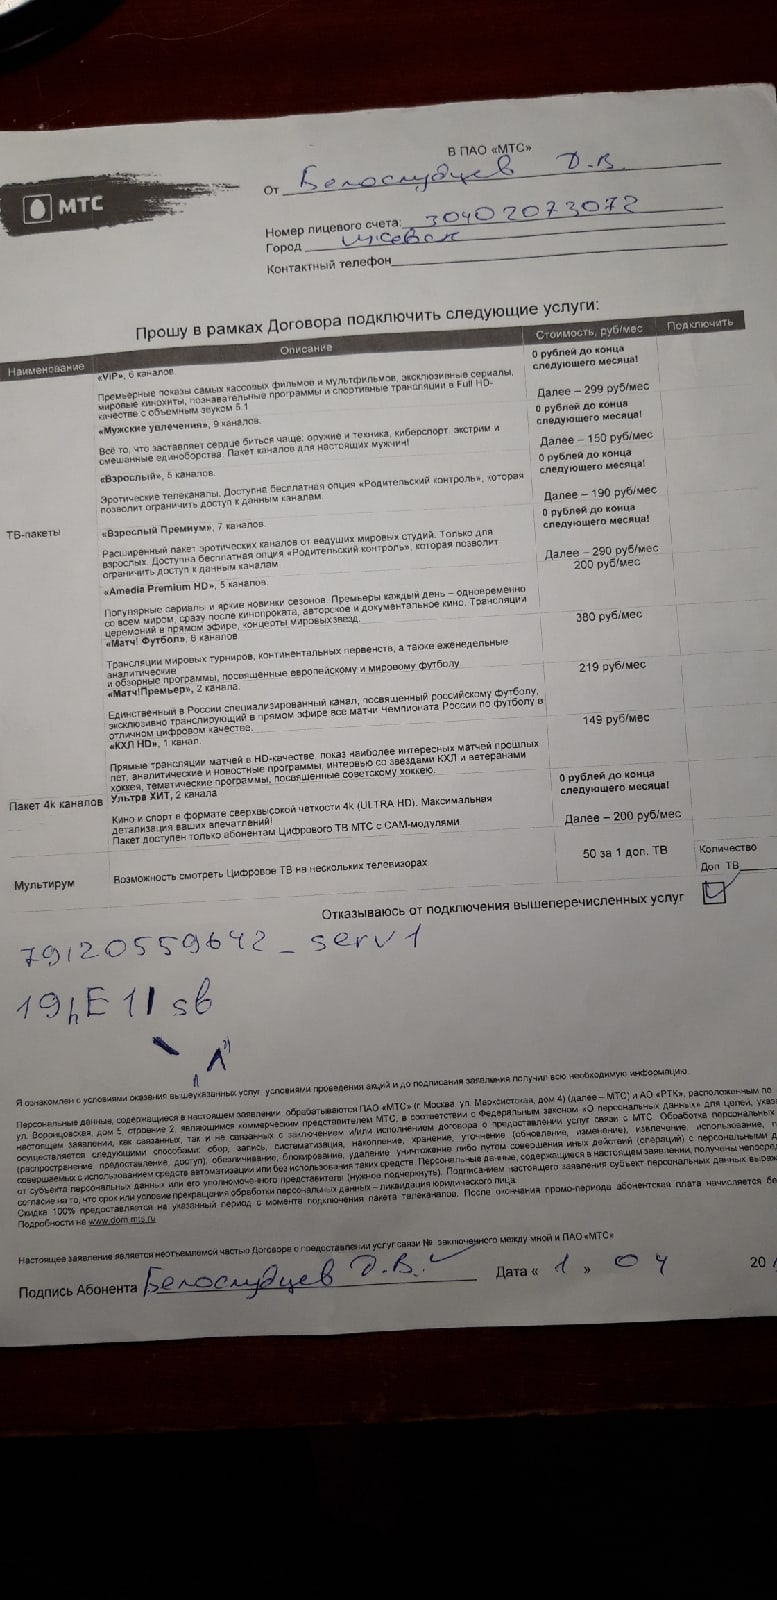 МТС
В ПАО «МТС»
От Белослудцев Д.В.
Номер лицевого счета: 30402073072
Город Ижевск
Контактный телефон
Прошу в рамках Договора подключить следующие услуги:
Наименование Описание Стоимость, руб/мес Подключить
ТВ-пакеты
«VIP», 6 каналов
Премьерные показы самых кассовых фильмов и мультфильмов, эксклюзивные сериалы,
мировые кинохиты, познавательные программы и спортивные трансляции в Full HD-
качестве с объемным звуком 5.1
0 рублей до конца
следующего месяца!
Далее – 299 руб/мес
«Мужские увлечения», 9 каналов.
Всё то, что заставляет сердце биться чаще: оружие и техника, киберспорт, экстрим и
смешанные единоборства. Пакет каналов для настоящих мужчин!
0 рублей до конца
следующего месяца!
Далее – 150 руб/мес
«Взрослый», 5 каналов.
Эротические телеканалы. Доступна бесплатная опция «Родительский контроль», которая
позволит ограничить доступ к данным каналам.
0 рублей до конца
следующего месяца!
Далее – 190 руб/мес
«Взрослый Премиум», 7 каналов.
Расширенный пакет эротических каналов от ведущих мировых студий. Только для
взрослых. Доступна бесплатная опция «Родительский контроль», которая позволит
ограничить доступ к данным каналам
0 рублей до конца
следующего месяца!
Далее – 290 руб/мес
«Amedia Premium HD», 5 каналов.
Популярные сериалы и яркие новинки сезонов. Премьеры каждый день – одновременно
со всем миром, сразу после кинопроката, авторское и документальное кино. Трансляции
церемоний в прямом эфире, концерты мировых звезд.
200 руб/мес
«Матч! Футбол», 6 каналов
Трансляции мировых турниров, континентальных первенств, а также еженедельные
аналитические
и обзорные программы, посвященные европейскому и мировому футболу
380 руб/мес
«Матч!Премьер», 2 канала.
Единственный в России специализированный канал, посвященный российскому футболу,
эксклюзивно транслирующий в прямом эфире все матчи Чемпионата России по футболу в
отличном цифровом качестве.
219 руб/мес
«КХЛ HD», 1 канал.
Прямые трансляции матчей в HD-качестве, показ наиболее интересных матчей прошлых
лет, аналитические и новостные программы, интервью со звездами КХЛ и ветеранами
хоккея, тематические программы, посвященные советскому хоккею.
149 руб/мес
Пакет 4k каналов
Ультра ХИТ, 2 канала
Кино и спорт в формате сверхвысокой четкости 4k (ULTRA HD). Максимальная
детализация ваших впечатлений!
Пакет доступен только абонентам Цифрового ТВ МТС с CAM-модулями
0 рублей до конца
следующего месяца!
Далее – 200 руб/мес
Мультирум
Возможность смотреть Цифровое ТВ на нескольких телевизорах
50 за 1 доп. ТВ
Количество
Доп. ТВ
Отказываюсь от подключения вышеперечисленных услуг
79120559642_serv1
Я ознакомлен с условиями оказания вышеуказанных услуг, условиями проведения акций и до подписания заявления получил всю необходимую информацию.
Персональные данные, содержащиеся в настоящем заявлении, обрабатываются ПАО «МТС» (г. Москва, ул. Марксистская, дом 4) (далее – МТС) и АО «РТК», расположенным по
ул. Воронцовская, дом 5, строение 2, являющимся коммерческим представителем МТС, в соответствии с Федеральным законом «О персональных данных» для целей,
настоящем заявлении, как связанных, так и не связанных с заключением и/или исполнением договора о предоставлении услуг связи с МТС. Обработка персональных
осуществляется следующими способами: сбор, запись, систематизация, накопление, хранение, уточнение (обновление, изменение), извлечение, использование,
(распространение, предоставление, доступ), обезличивание, блокирование, удаление, уничтожение либо путем совершения иных действий (операций) с персональными
совершаемых с использованием средств автоматизации или без использования таких средств. Персональные данные, содержащиеся в настоящем заявлении, получены
от субъекта персональных данных или его уполномоченного представителя (нужное подчеркнуть). Подписанием настоящего заявления субъект персональных данных
согласие на то, что срок или условие прекращения обработки персональных данных – ликвидация юридического лица.
Скидка 100% предоставляется на указанный период с момента подключения пакета телеканалов. После окончания промо-периода абонентская плата начисляется
Подробности на www.dom.mts.ru
Настоящее заявление является неотъемлемой частью Договора о предоставлении услуг связи № заключенного между мной и ПАО «МТС»
Подпись Абонента Белослудцев Д.В. Дата « 1 » 04 20